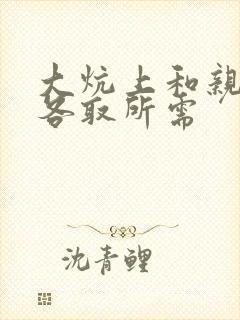 大炕上和親
各取所需
沈青鲤